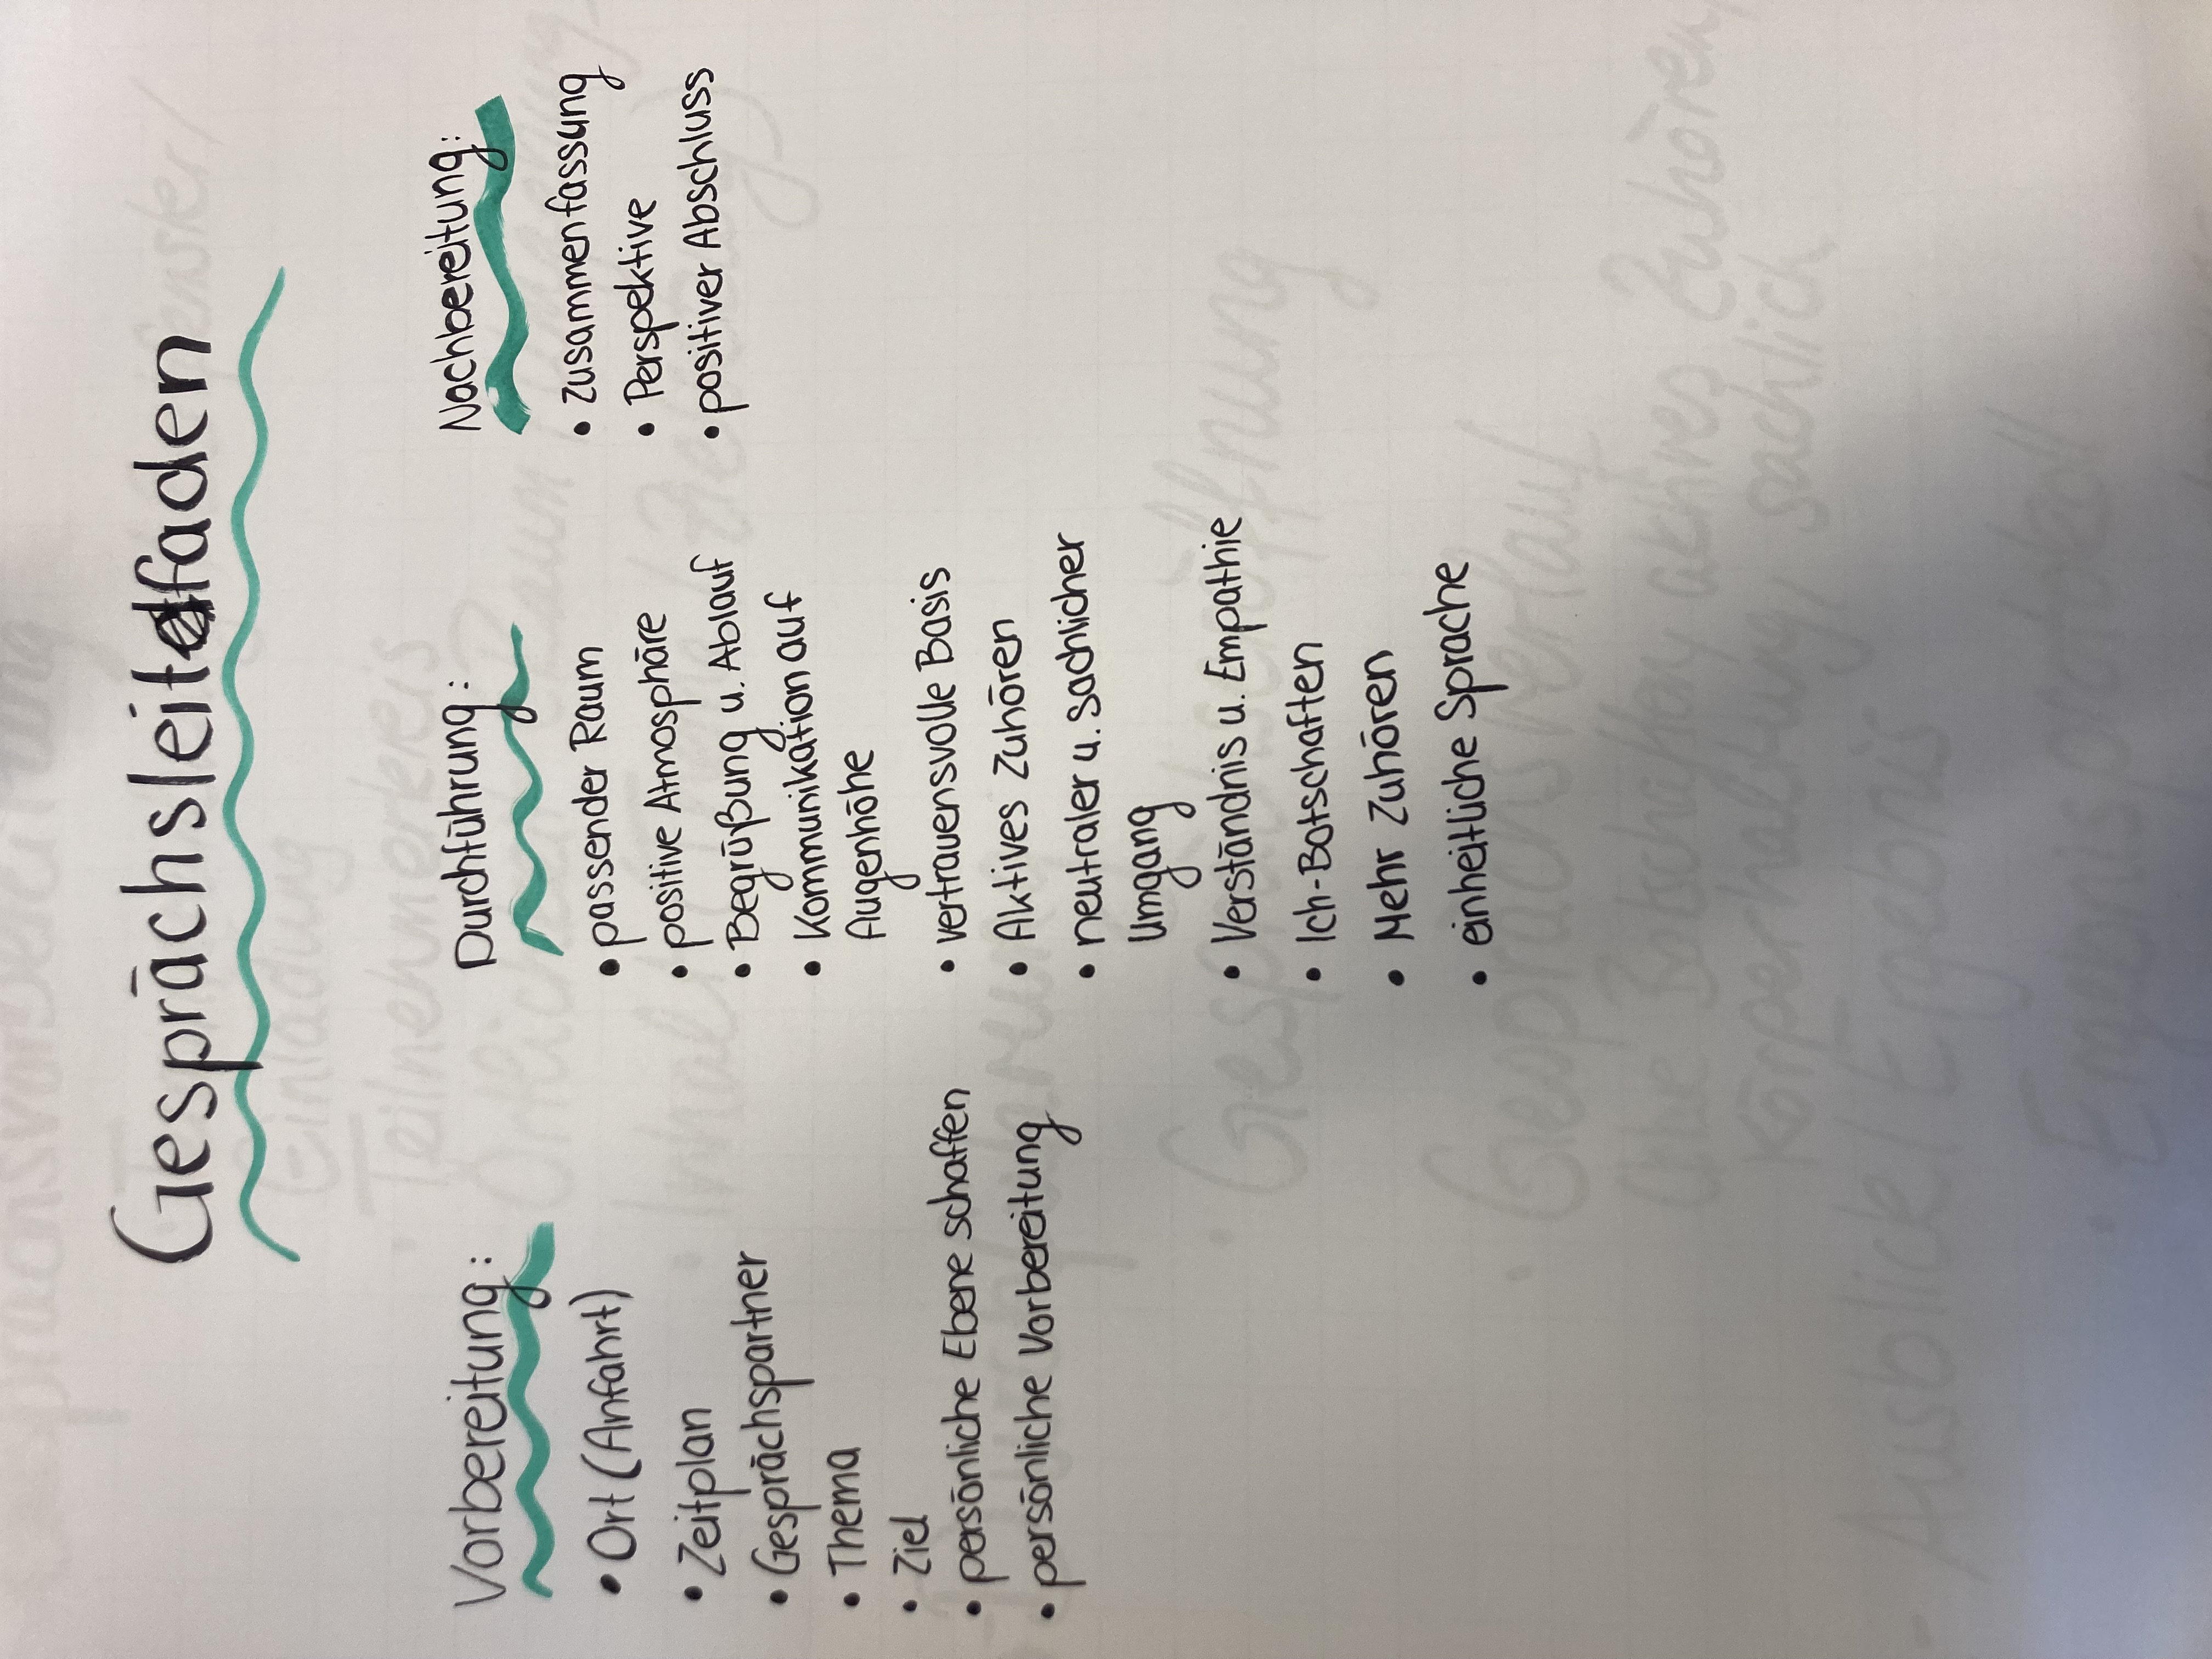 Gesprächsleitfaden
Vorbereitung:
• Ort (Anfahrt)
• Zeitplan
• Gesprächspartner
• Thema
• Ziel
• persönliche Ebene schaffen
• persönliche Vorbereitung
Durchführung:
• passender Raum
• positive Atmosphäre
• Begrüßung u. Ablauf
• Kommunikation auf
Augenhöhe
• vertrauensvolle Basis
• Aktives Zuhören
• neutraler u. sachlicher
Umgang
• Verständnis u. Empathie
• Ich-Botschaften
• Mehr Zuhören
• einheitliche Sprache
Nachbereitung:
• Zusammenfassung
• Perspektive
• positiver Abschluss